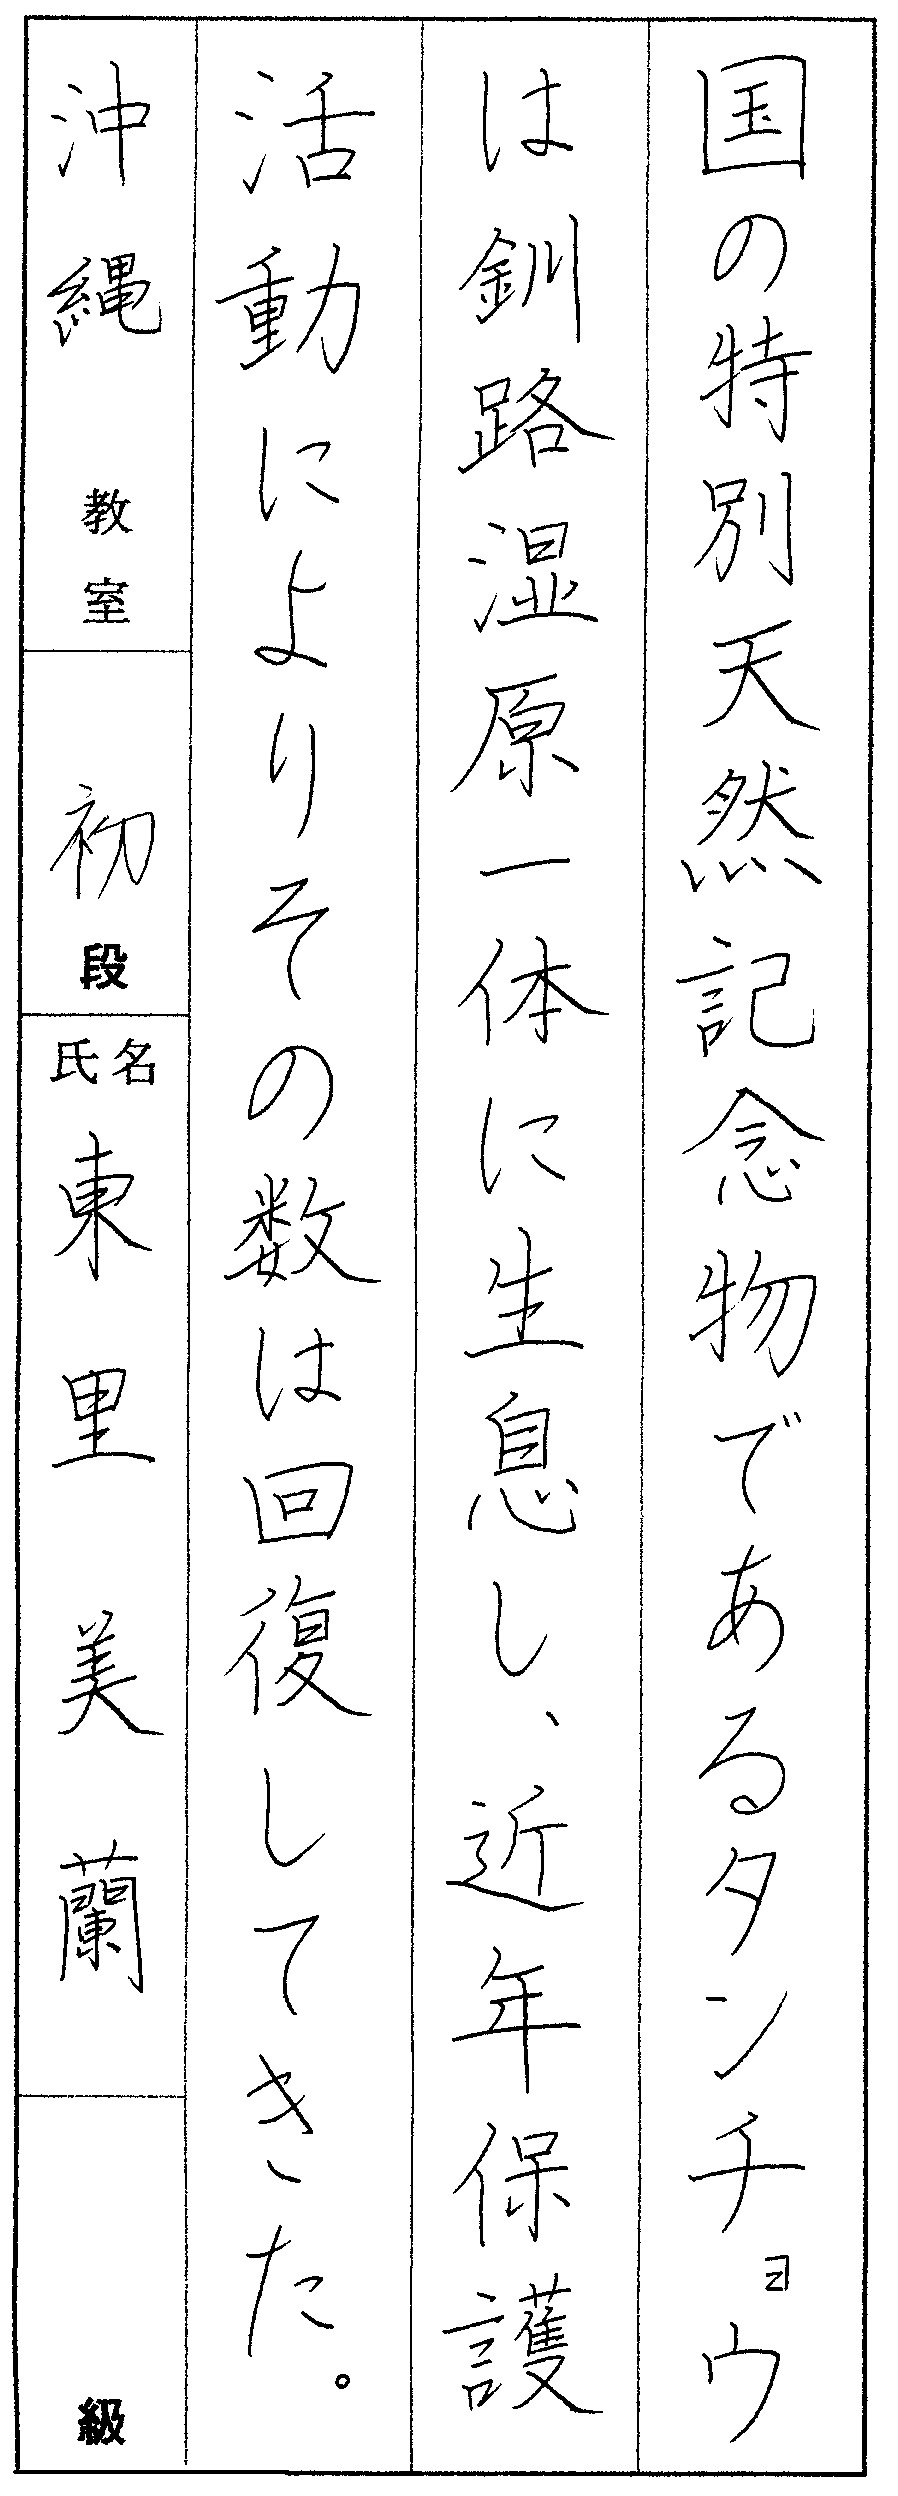 国の特別天然記念物であるタンチョウ
は釧路湿原一体に生息し、近年保護
活動によりその数は回復してきた。
沖縄教室
初段
氏名
東里美蘭
級